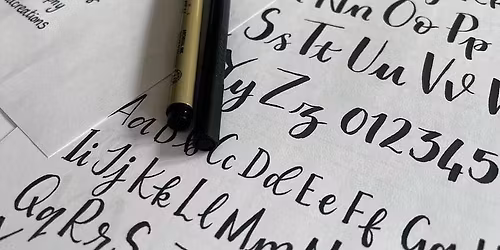 creations
Nn Oo Pp
Ss Tt Uu Vv
Yy Zz 012345
Aa Bb Cc Dd Ee Ff
Ii Jj Kk Ll Mm
Qq Rr